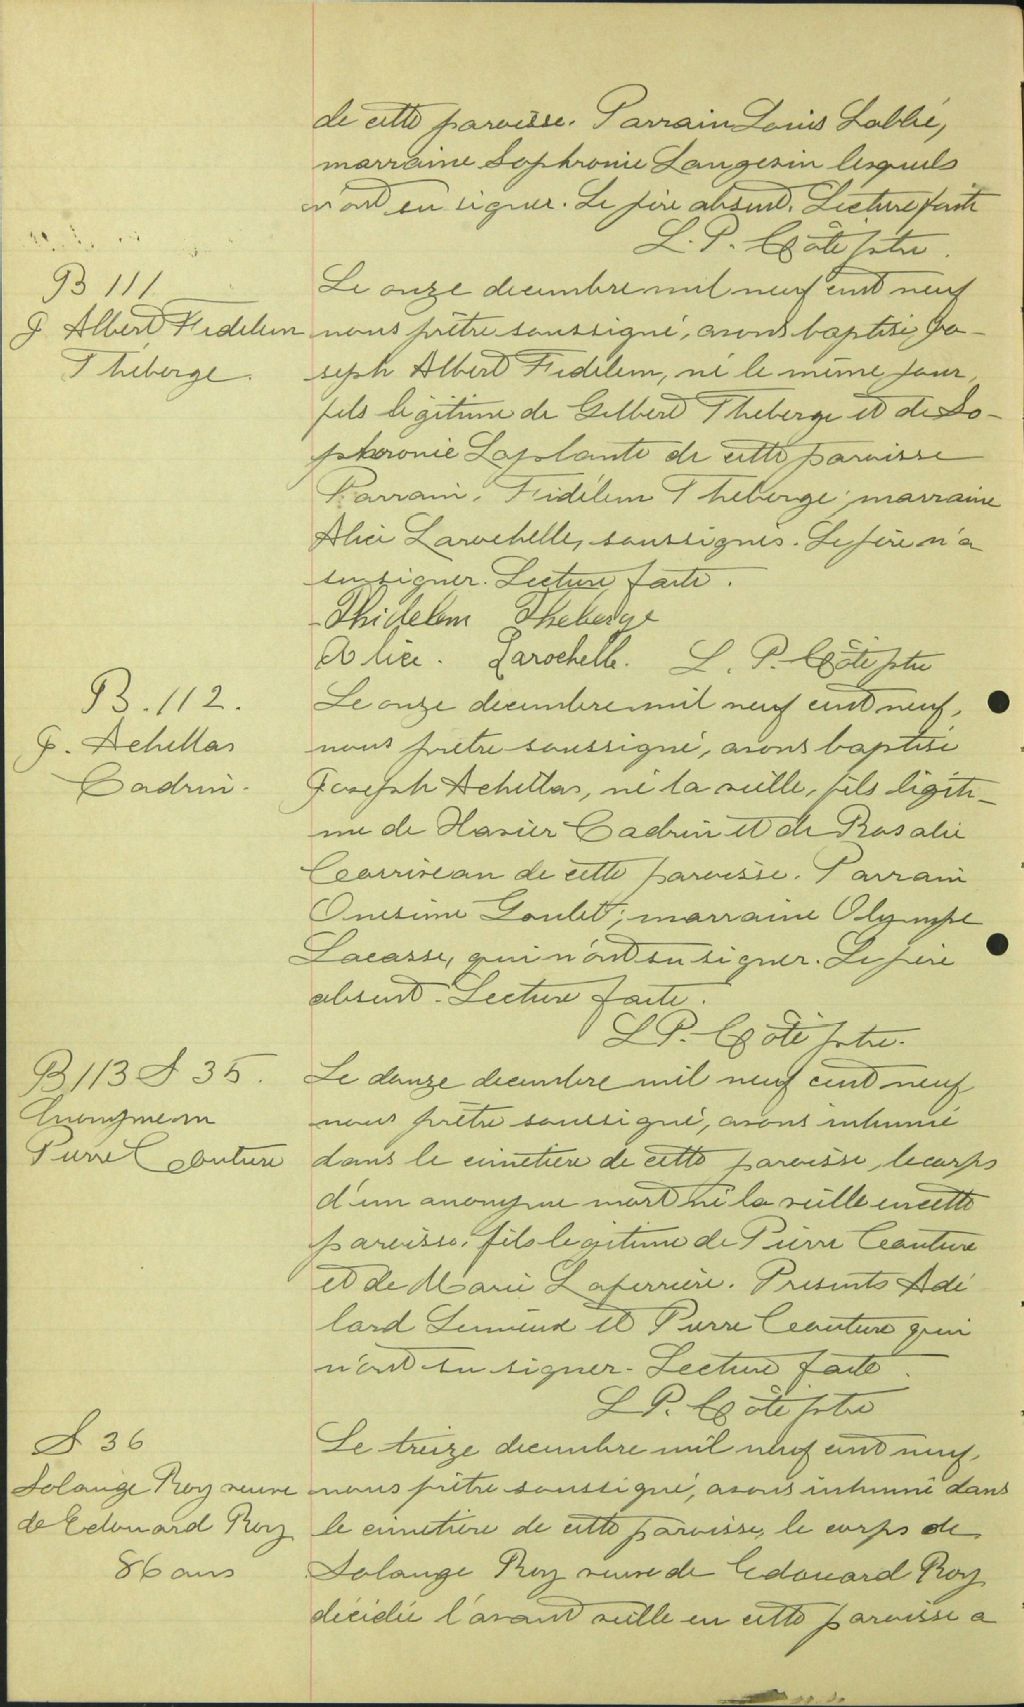 de cette paroisse. Parrain Louis Labbé,
marraine Sophronie Langevin lesquels
n'ont su signer. Le père absent. Lecture faite
L. P. Côté ptre.
B 111
J Albert Fidelem
Théberge.
Le onze decembre mil neuf cent neuf
nous prêtre soussigné, avons baptisé Jo-
seph Albert Fidelem, né le même jour,
fils légitime de Gilbert Theberge et de So-
phronie Laplante de cette paroisse
Parrain, Fidélem Theberge; marraine
Alice Larochelle, soussignés. Le père n'a
su signer. Lecture faite.
Phidelem Theberge
Alice. Larochelle. L. P. Côté ptre
B. 112.
J. Achellas
Cadrin.
Le onze decembre mil neuf cent neuf,
nous prêtre soussigné, avons baptisé
Joseph Achellas, né la veille, fils légiti-
me de Xavier Cadrin et de Rosalie
Corriveau de cette paroisse. Parrain
Onesime Goulet; marraine Olympe
Lacasse, qui n'ont su signer. Le père
absent. Lecture faite.
L P. Côté ptre.
B 113 S 35.
Anonyme m
Pierre Couture
Le douze decembre mil neuf cent neuf
nous prêtre soussigné, avons inhumé
dans le cimetière de cette paroisse, le corps
d'un anonyme mort né la veille en cette
paroisse, fils legitime de Pierre Couture
et de Marie Laferrière. Presents Adé
lard Lemieux et Pierre Couture qui
n'ont su signer. Lecture faite.
L P. Côté ptre
S 36
Solange Roy veuve
de Edouard Roy
86 ans
Le treize decembre mil neuf cent neuf,
nous prêtre soussigné, avons inhumé dans
le cimetière de cette paroisse, le corps de
Solange Roy veuve de Edouard Roy
décédée l'avant veille en cette paroisse a